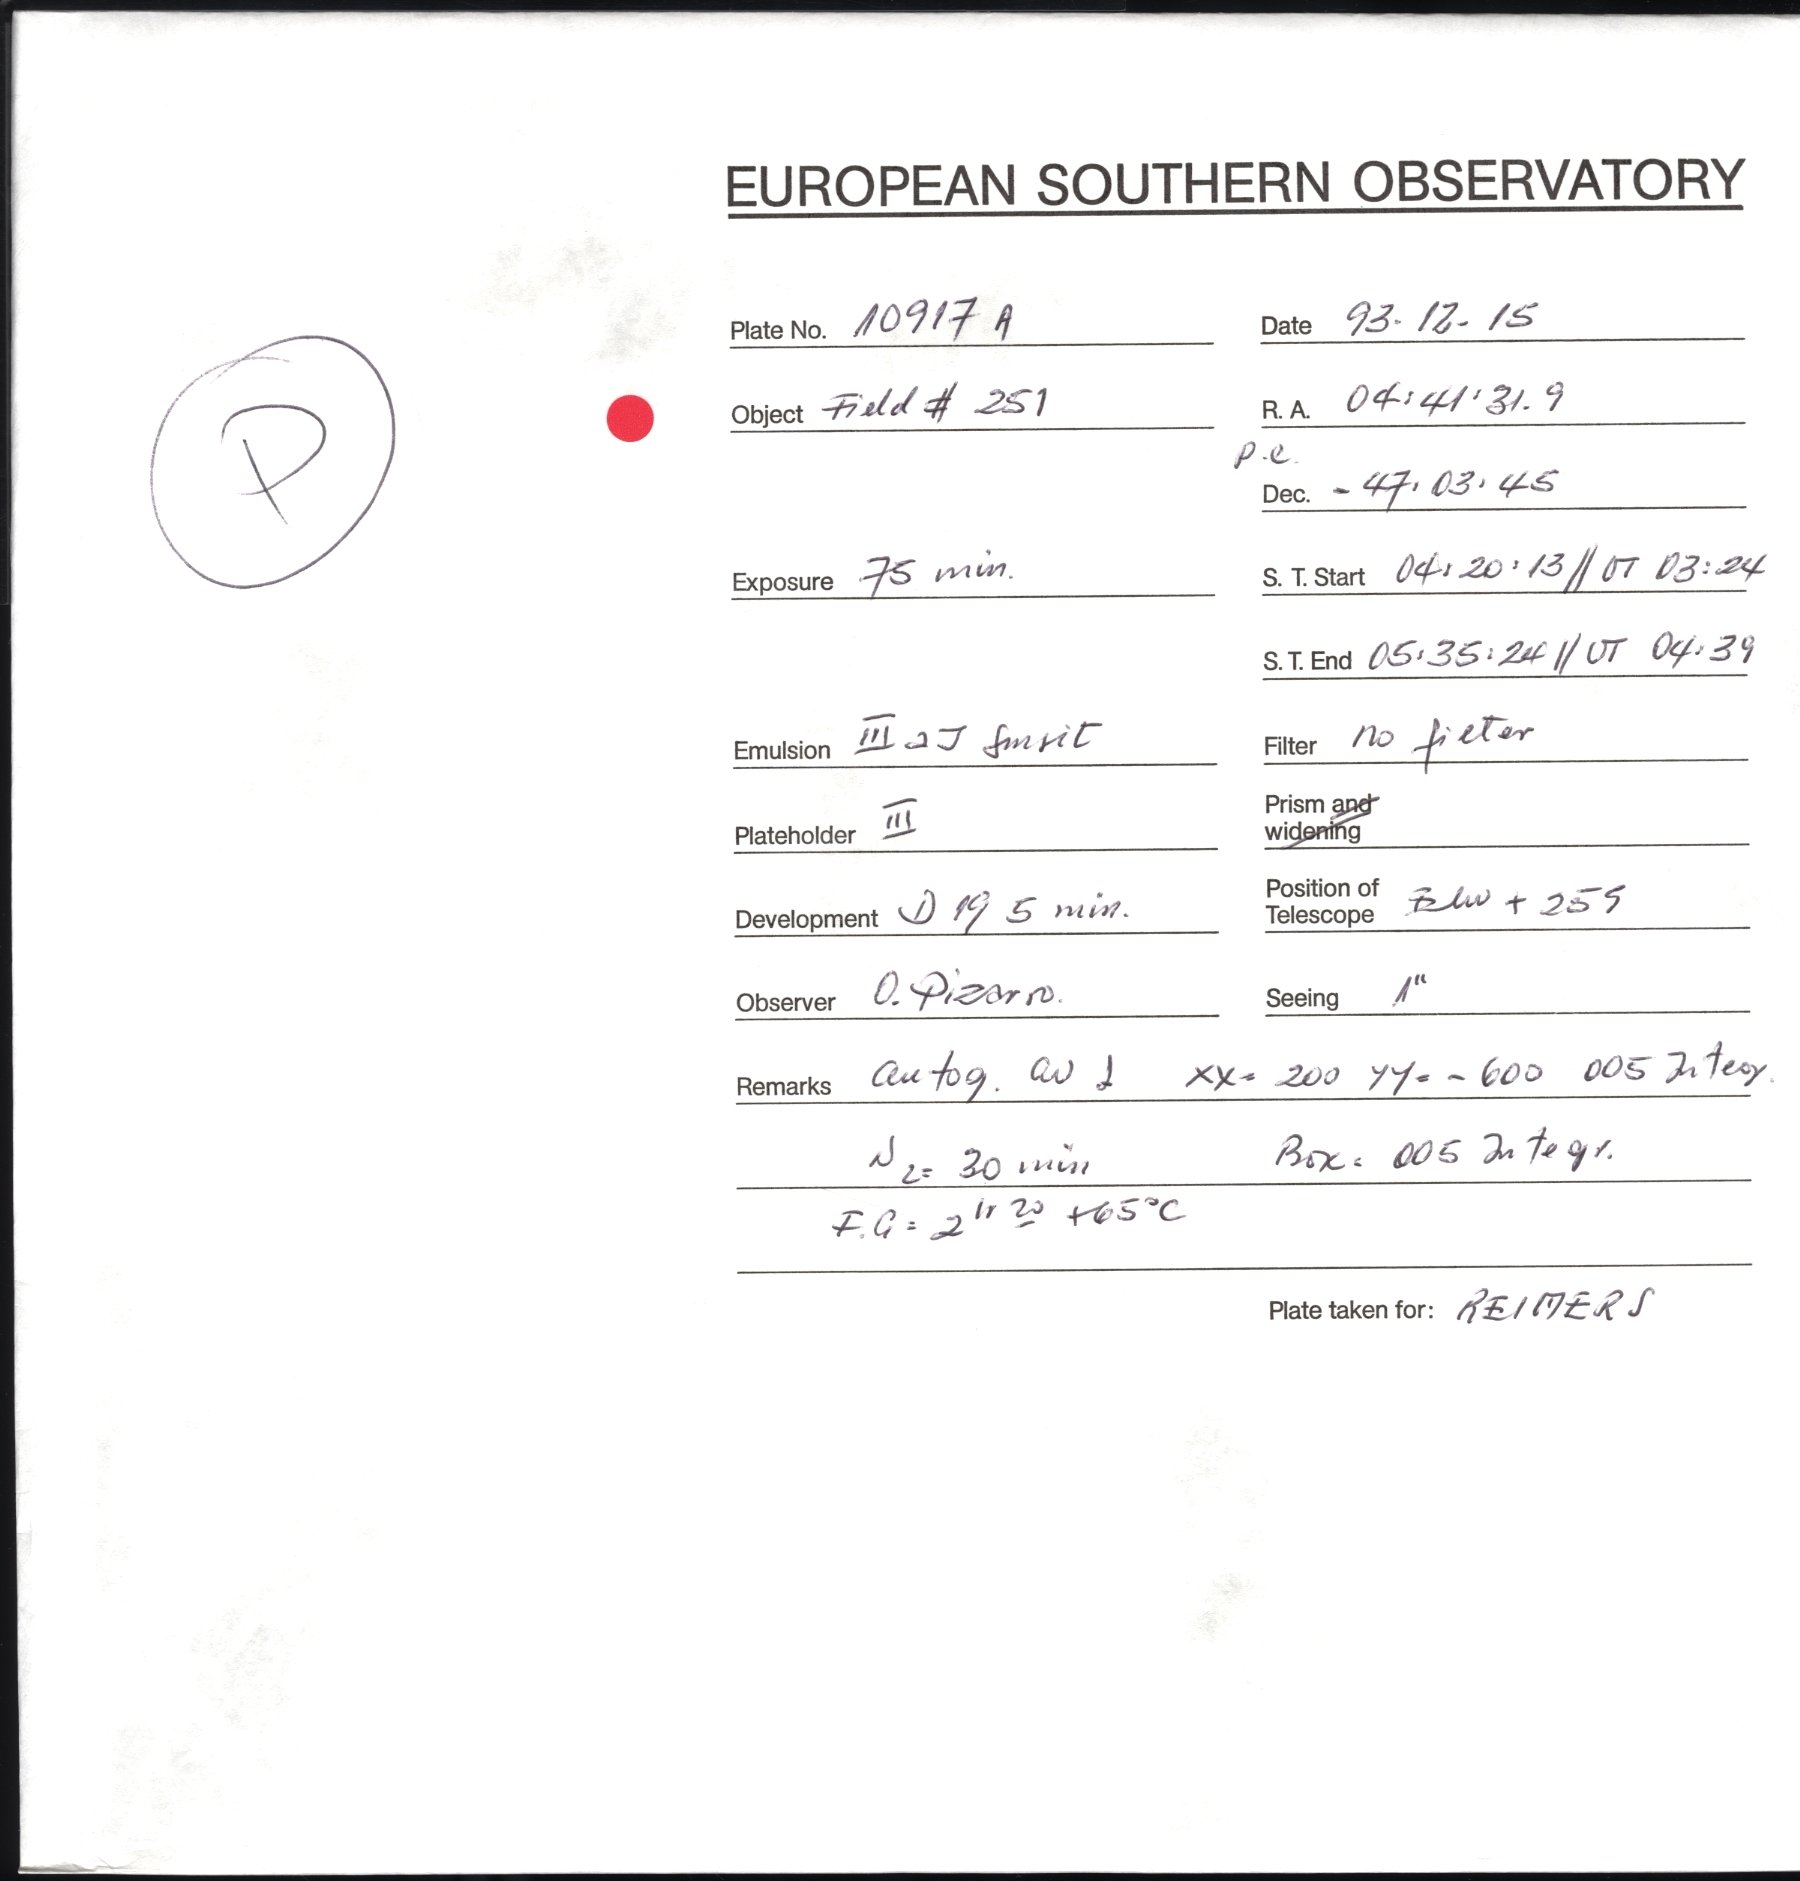 EUROPEAN SOUTHERN OBSERVATORY
Plate No. 10917 A
Date 93-12-15
P
Object Field # 251
R. A. 04:41:31.9
p.e.
Dec. - 47:03:45
Exposure 75 min.
S. T. Start 04:20:13 // UT 03:24
S. T. End 05:35:24 // UT 04:39
Emulsion III aJ
Filter no filter
Plateholder III
Prism and widening
Development D 19 5 min.
Position of Telescope + 259
Observer O. Pizarro.
Seeing 1"
Remarks autog. XX= 200 YY= - 600 005 Integr.
N2= 30 min Box= 005 Integr.
F.G = 2 hr 20 +65°C
Plate taken for: REIMERS